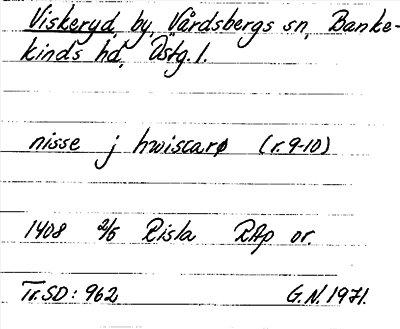 Viskeryd, by, Vårdsbergs sn, Banke-
kinds hd, Östg. l.
nisse j hwiscarø (r. 9-10)
1408 2/5 Risla RAp or.
Tr. SD: 962 G.N. 1971.